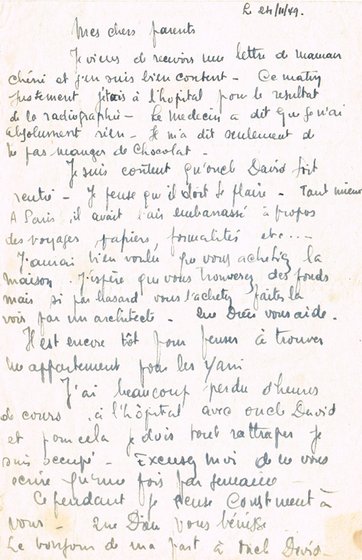 Le 24/11/49.
Mes chers parents
Je viens de recevoir une lettre de maman
chéri et j'en suis bien content - Ce matin
justement j'étais à l'hôpital pour le resultat
de la radiographie - Le medecin a dit que je n'ai
absolument rien - Il m'a dit seulement de
ne pas manger de Chocolat -
Je suis content qu'oncle David soit
rentré - Je pense qu'il doit se plaire - Tant mieux
A Paris il avait l'air embarassé à propos
des voyages papiers, formalités etc...
J'aurai bien voulu que vous achetiez la
maison. J'espère que vous trouverez des fonds
mais si par hasard vous l'achetez faites la
voir par un architecte - Que Dieu vous aide.
Il est encore tôt pour penser à trouver
un appartement pour les
J'ai beaucoup perdu d'heures
de cours à l'hôpital avec oncle David
et pour cela je dois tout rattraper je
suis occupé - Excusez moi de ne vous
écrire qu'une fois par semaine -
Cependant je pense constment à
vous - Que Dieu vous bénisse
Le bonjour de ma part à oncl David -